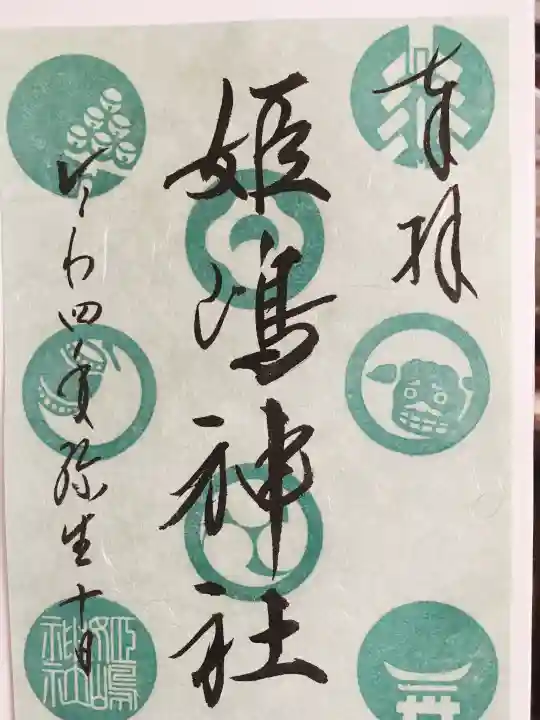 奉拝
姫嶋神社
令和四年弥生十日
姫嶋神社